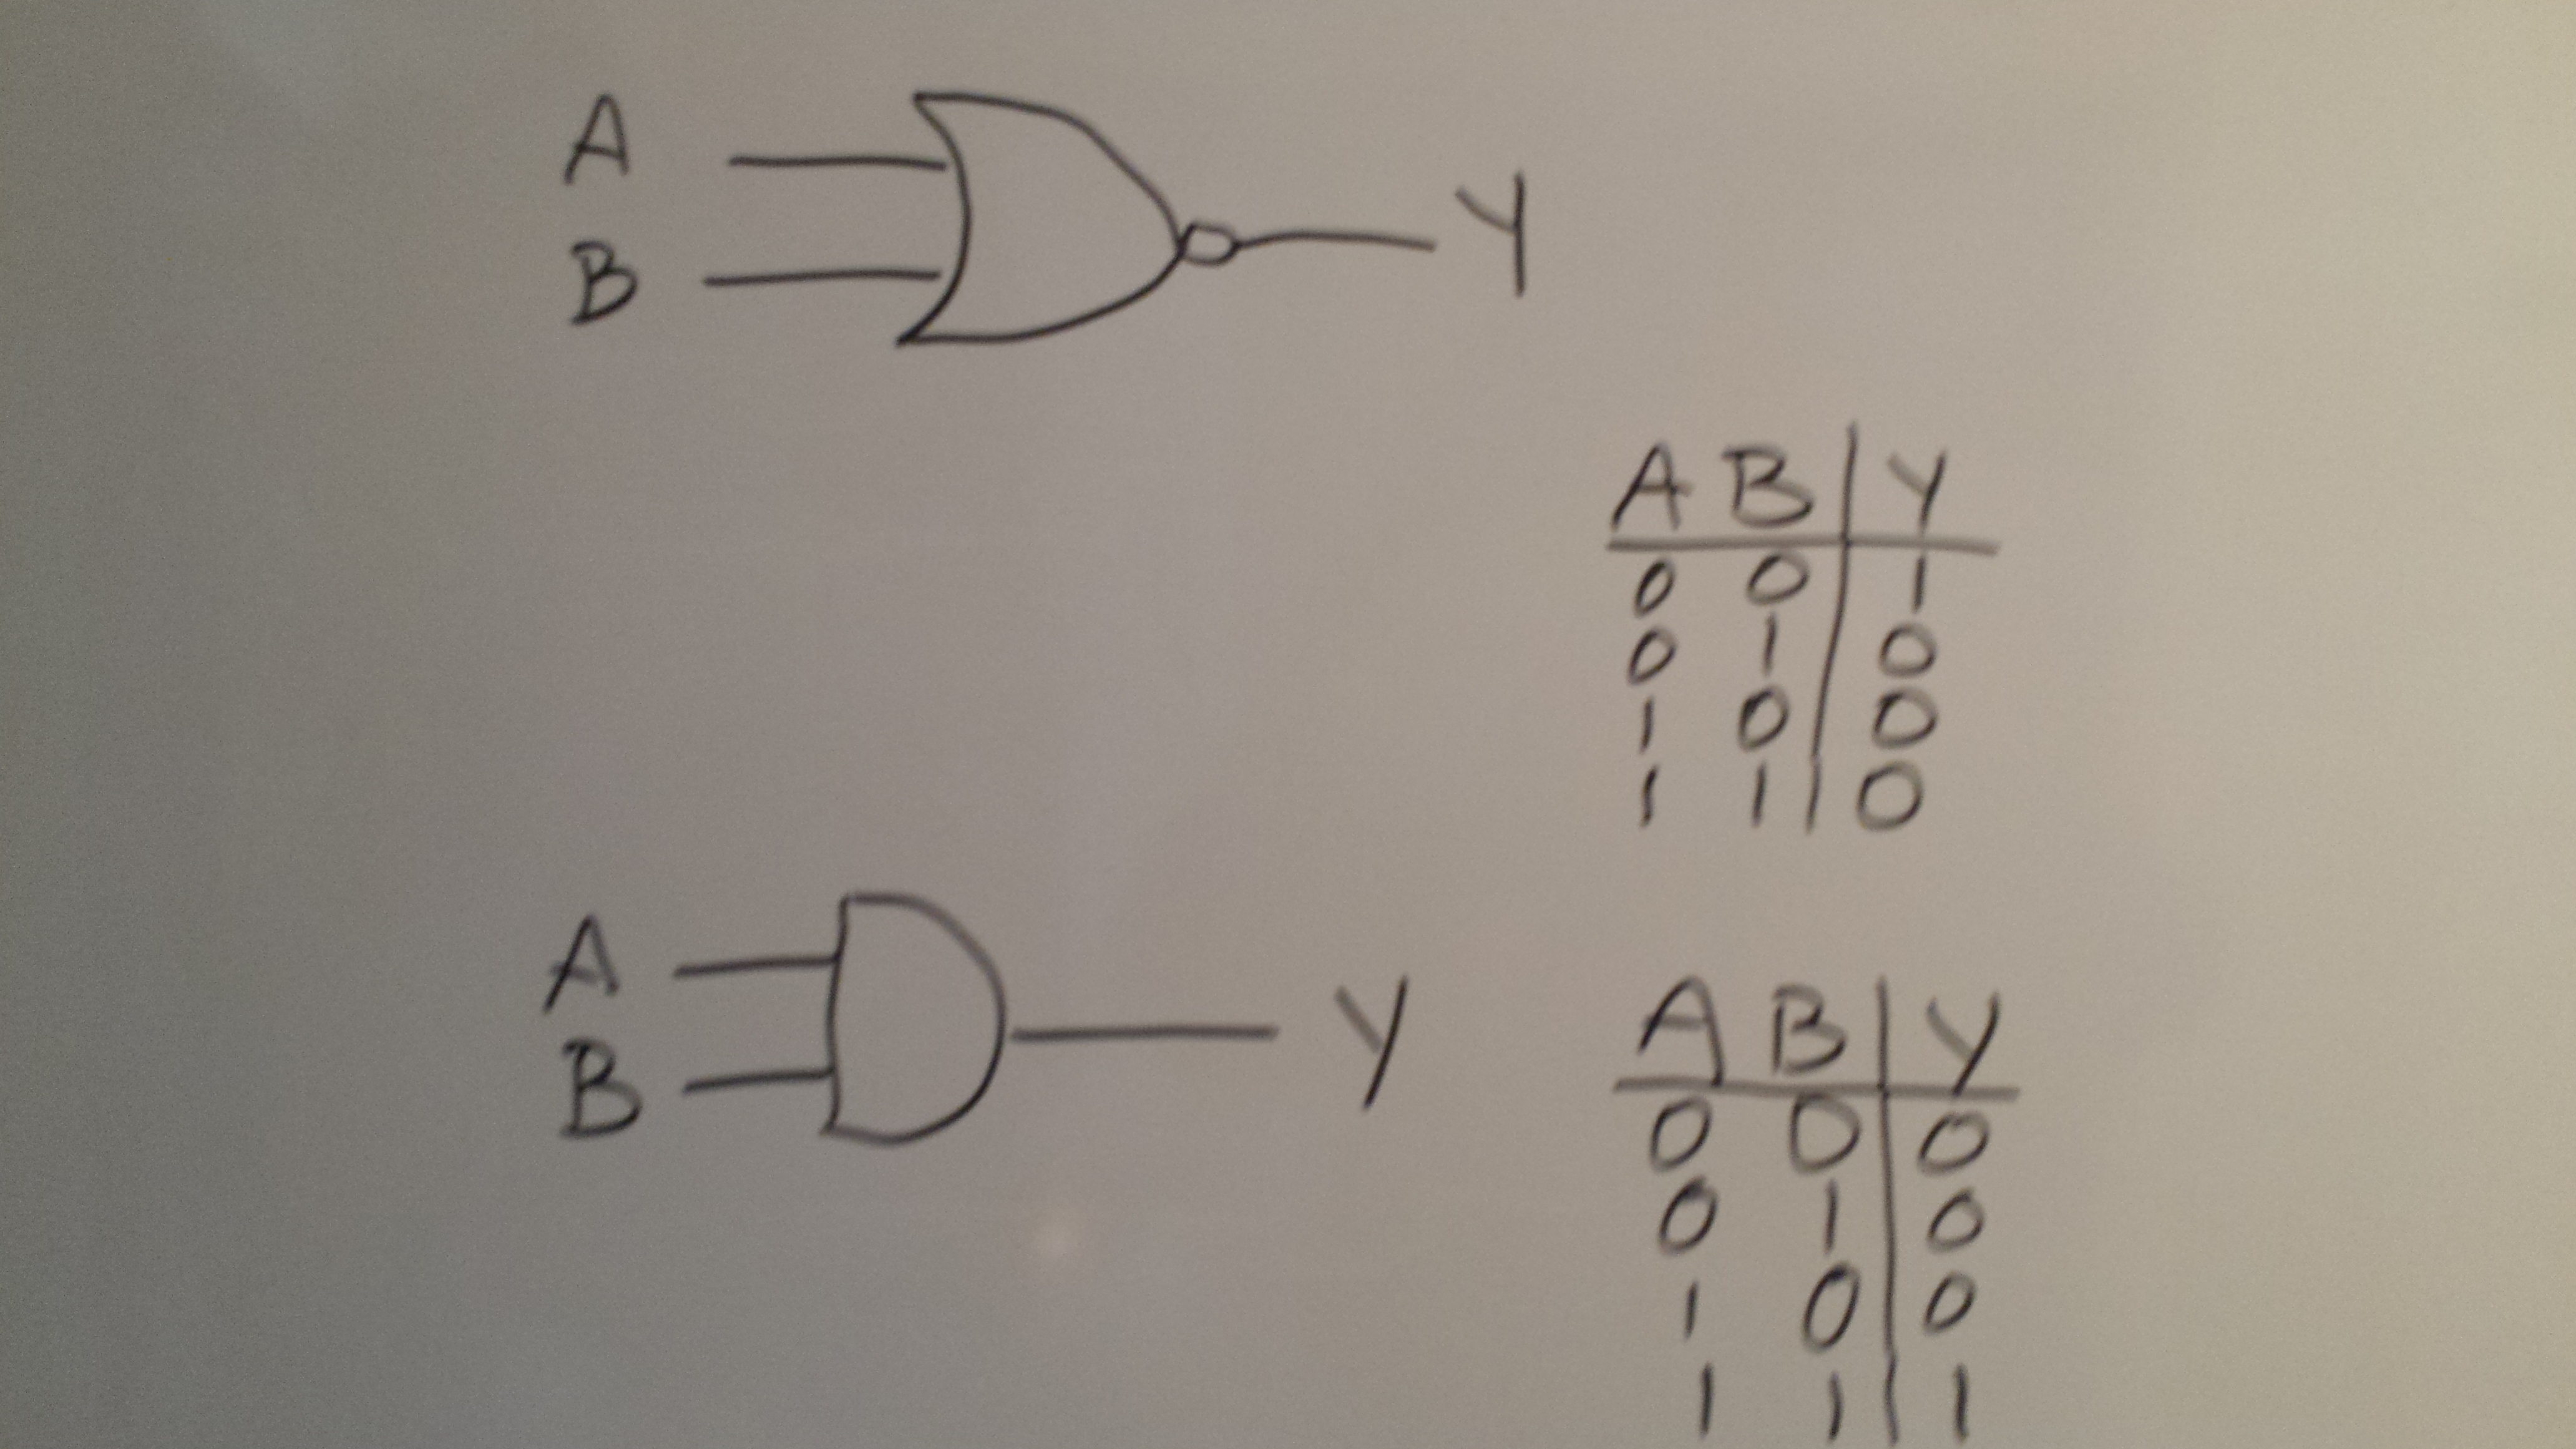 A
Y
B
A B Y
0 0 1
0 1 0
1 0 0
1 1 0
A
Y
B
A B Y
0 0 0
0 1 0
1 0 0
1 1 1